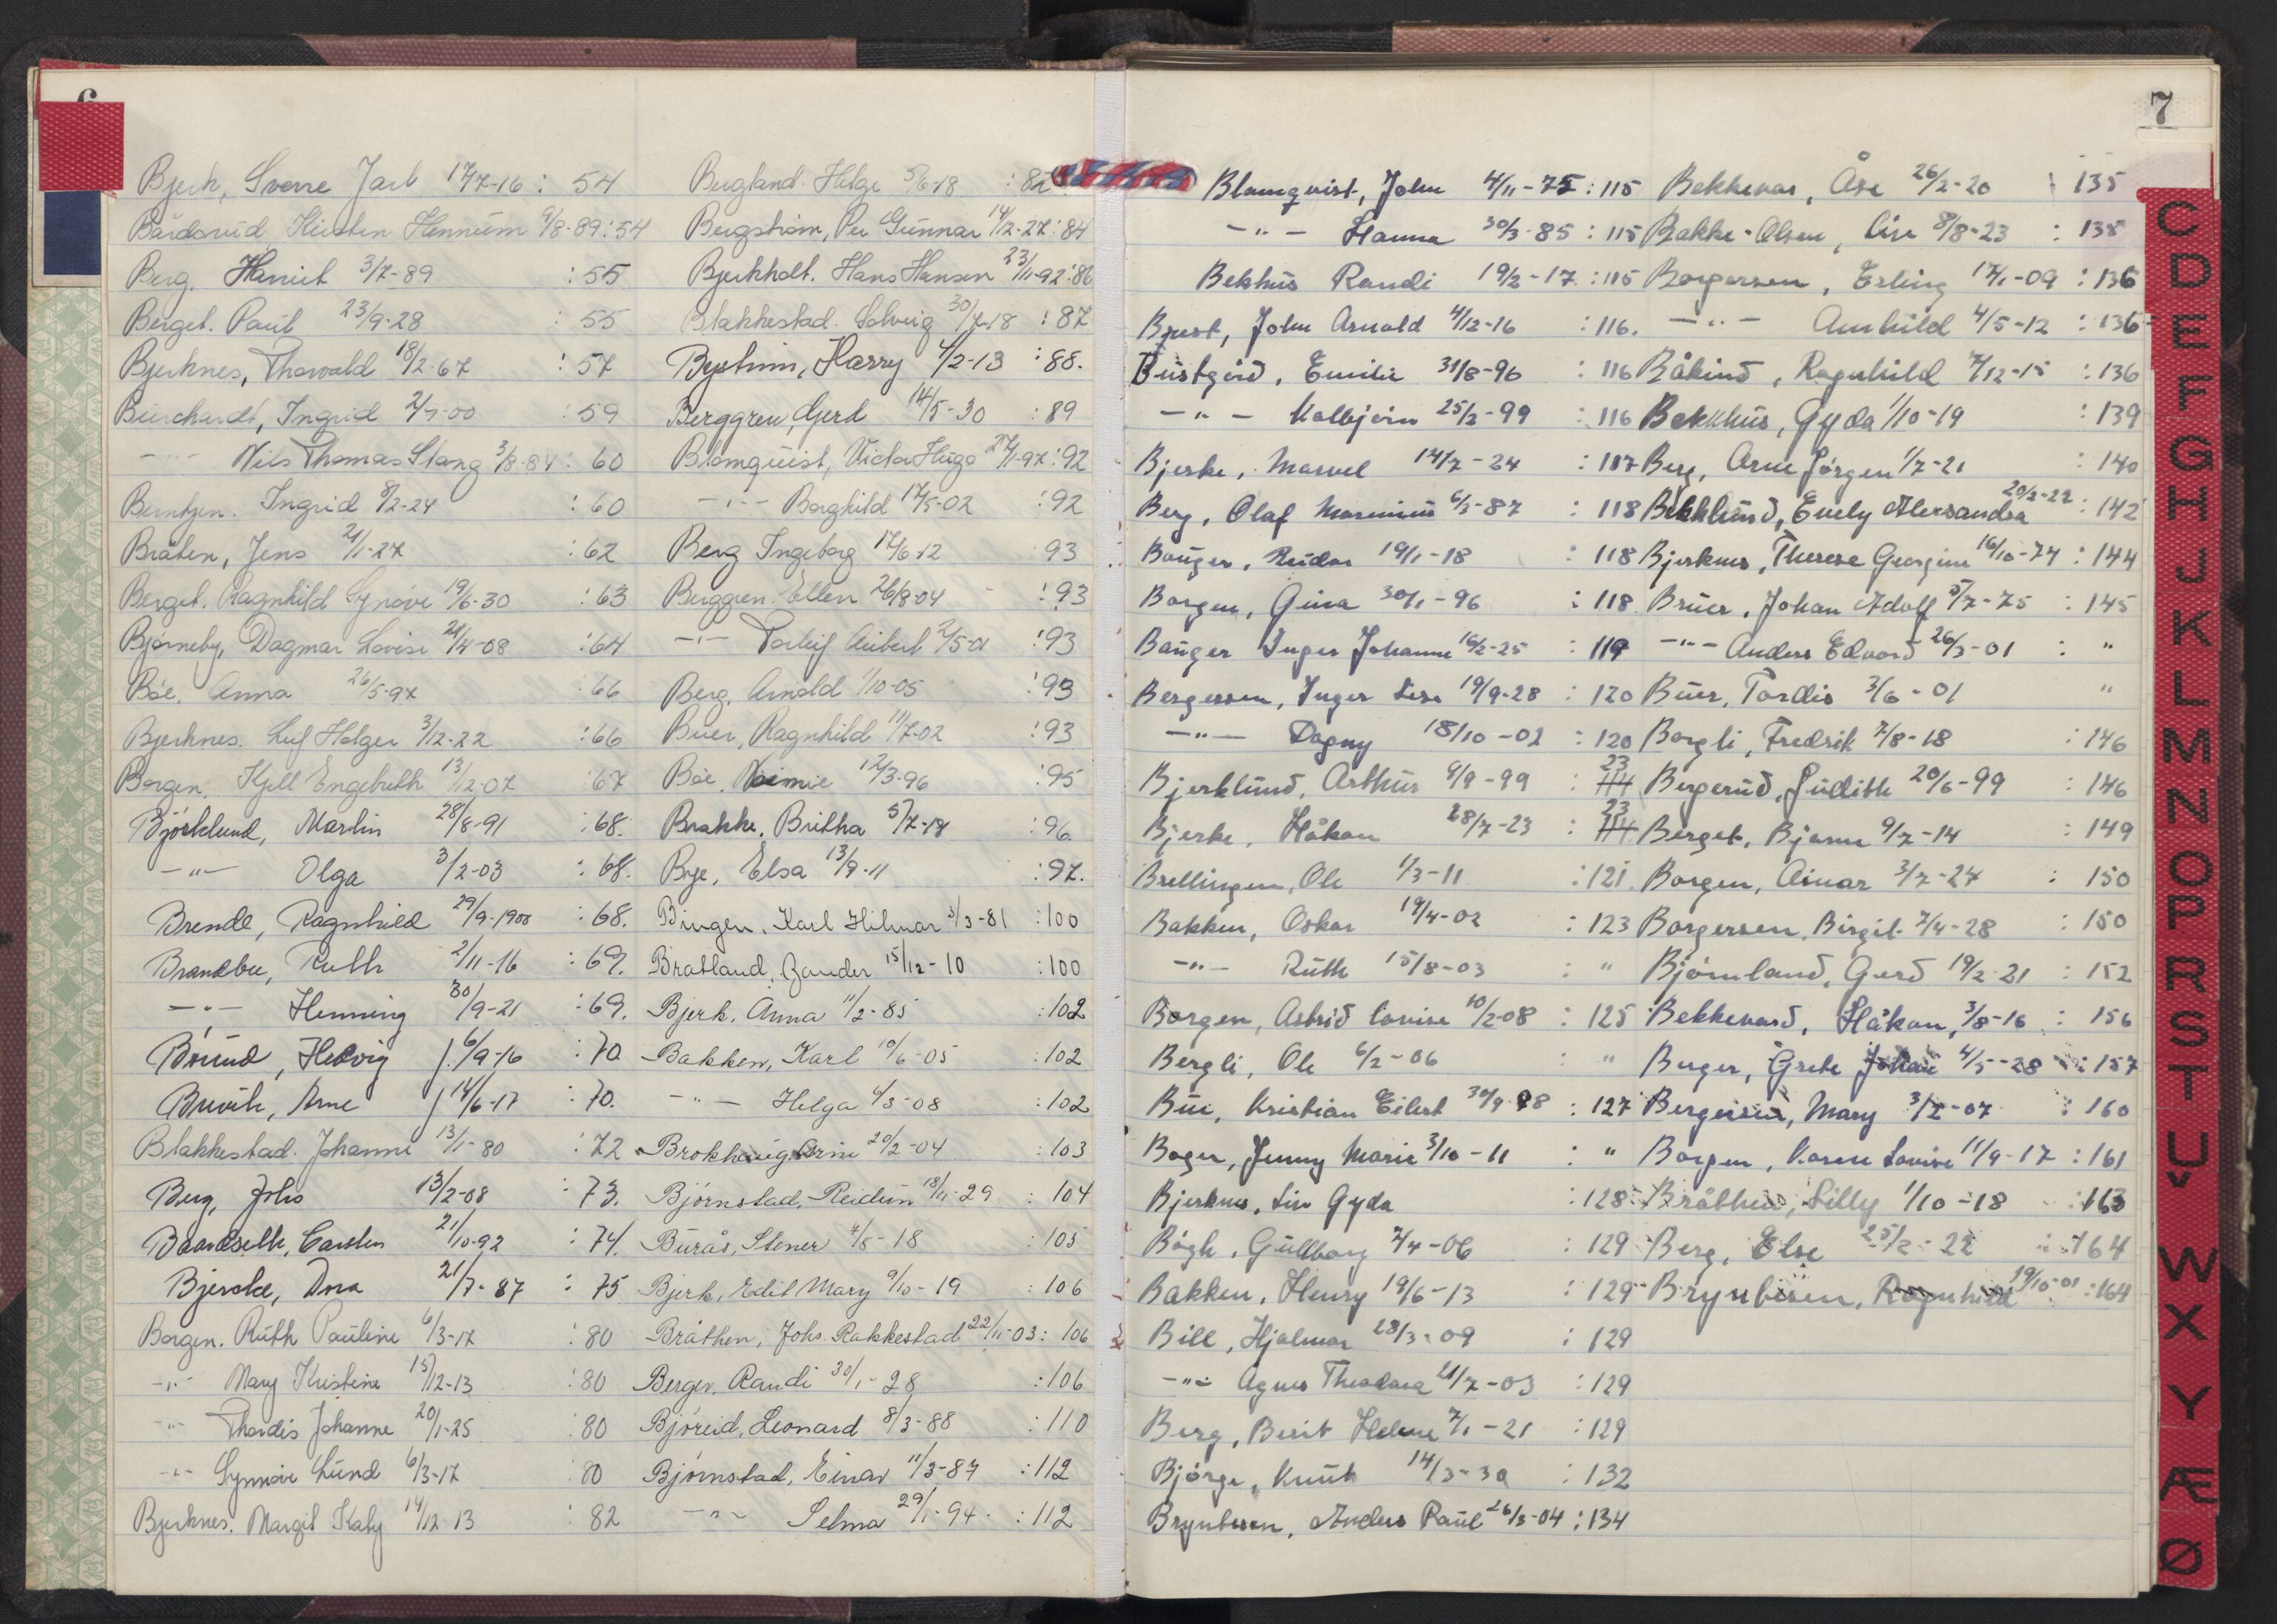 6
Bjerk, Sverre Jarl 17/7-16 : 54
Bårdsrud Kirsten Hennum 9/8-89 : 54
Berg, Harriet 3/7-89 : 55
Berget. Paul 23/9-28 : 55
Bjerknes, Thorvald 18/2-67 : 57
Burchardt, Ingrid 2/7-00 : 59
-"- Nils Thomas Stang 3/8-84 : 60
Berntzen. Ingrid 8/2-24 : 60
Bråten, Jens 21/1-27 : 62
Berget. Ragnhild Synøve 19/6-30 : 63
Bjørneby, Dagmar Lovise 21/4-08 : 64
Bøe, Anna 26/5-97 : 66
Bjerknes. Leif Holger 3/12-22 : 66
Borgen, Kjell Engebreth 13/12-07 : 67
Bjørklund, Martin 28/8-91 : 68.
-"- Olga 3/2-03 : 68.
Brendl, Ragnhild 29/9-1900 : 68.
Brandbu, Ruth 2/11-16 : 69.
-"- Henning 30/9-21 : 69.
Brund, Hedvig f. 6/9-16 : 70
Brevik, Arne f 14/6-17 : 70.
Blakkestad. Johanne 13/1-80 : 72
Berg, Johs 13/2-08 : 73.
Baardseth, Carsten 21/10-92 : 74.
Bjercke, Dora 21/7-87 : 75
Borgen. Ruth Pauline 6/3-17 : 80
-"- Mary Kristine 15/12-13 : 80
-"- Thordis Johanne 20/1-25 : 80
-"- Synnøve Lund 6/3-17 : 80
Bjerknes. Margit Katy 14/12-13 : 82
Bergland. Helge 5/6-18 : 82
Bergstrøm, Per Gunnar 14/12-27 : 84
Bjerkholt. Hans Hansen 23/11-92 : 86
Blakkestad. Solveig 30/7-18 : 87
Bystrøm, Harry 4/2-13 : 88.
Berggren, Gerd 14/5-30 : 89
Blomquist, Victor Hugo 27/1-97 : 92
-"- Borghild 17/5-02 : 92
Berg Ingeborg 17/6-12 93
Berggren. Ellen 26/8-04 : 93
-"- Torleif 2/5-01 : 93
Berg, Arnold 1/10-05 : 93
Buer, Ragnhild 11/7-02 : 93
Bøe, Noimie 12/3-96 : 95
Brakke, Britha 5/7-18 : 96
Bye, Elsa 13/9-11 : 97.
Bingen, Karl Hilmar 3/3-81 : 100
Bratland, Gander 15/12-10 : 100
Bjerk, Anna 11/2-85 : 102
Bakken, Karl 10/6-05 : 102
-"- Helga 4/3-08 : 102
Brokhaug Arne 20/2-04 : 103
Bjørnstad, Reidun 18/11-29 : 104
Burås, Stener 4/8-18 : 105
Bjerk, Edit Mary 9/10-19 : 106
Bråthen, Johs. Rakkestad 22/11-03 : 106
Berger, Randi 30/1-28 : 106
Bjøreid, Leonard 8/3-88 : 110
Bjørnstad, Einar 11/3-87 : 112
-"- Selma 29/1-94. : 112
7
Blomqvist, John 4/11-75 : 115
-"- Hanna 30/3-85 : 115
Bekhus Randi 19/2-17 : 115
Bjust, John Arnold 4/12-16 : 116.
Bustgård, Emilie 31/8-96 : 116
-"- Kolbjørn 25/2-99 : 116
Bjerke, Marvel 14/7-24 : 117
Berg, Olaf Marinius 6/3-87 : 118
Bauger, Reidar 19/1-18 : 118
Borgen, Gina 30/1-96 : 118
Bauger Inger Johanne 16/2-25 : 119
Bergersen, Inger Lise 19/9-28 : 120
-"- Dagny 18/10-02 : 120
Bjerklund, Arthur 9/9-99 : 23
Bjerke, Håkon 28/7-23 : 23
Brellingen, Ole 1/3-11 : 121.
Bakken, Oskar 19/4-02 : 123
-"- Ruth 15/8-03 : "
Borgen, Astrid Lovise 10/2-08 : 125
Bergli, Ole 6/2-06 : "
Bue, Kristian Eilert 30/9-98 : 127
Boger, Jenny Marie 3/10-11 : "
Bjerknes, Liv Gyda : 128
Bøgh, Gullborg 7/4-06 : 129
Bakken, Henry 19/6-13 : 129
Bill, Hjalmar 28/3-09 : 129
-"- Agnes Theodora 21/7-03 : 129
Berg, Berit Helene 7/1-21 : 129
Bjørge, Knut 14/3-30 : 132
Bryntesen, Anders Paul 26/3-04 : 134
Bekkevar, Åse 26/2-20 135
Bakke-Olsen, Lise 8/8-23 : 135
Borgersen, Erling 17/1-09 : 136
-"- Aunhild 4/5-12 : 136
Båkind, Ragnhild 7/12-15 : 136
Bekkhus, Gyda 1/10-19 : 139
Berg, Arne Jørgen 1/7-21 : 140
Bekklund, Evely Alexandra 20/2-22 : 142
Bjerknes, Therese Georgine 16/10-74 : 144
Bruer, Johan Adolf 5/7-75 : 145
-"- Anders Edvard 26/3-01 : "
Buer, Tordis 3/6-01 "
Borgli, Fredrik 7/8-18 : 146
Bergerud, Judith 20/6-99 : 146
Berget, Bjarne 9/7-14 : 149
Borgen, Ainar 3/7-24 : 150
Borgersen, Birgit 7/4-28 : 150
Bjørnland, Gerd 19/2-21 : 152
Bekkevard, Håkon, 3/8-16 : 156
Berger, Grete Johan 4/5-28 : 157
Bergersen, Mary 3/2-07 : 160
Borgen, Karen Lovise 11/9-17 : 161
Bråthen, Lilly 1/10-18 : 163
Berg, Else 25/2-22 : 164
Bryntesen, Ragnhild 19/10-01 : 164
C
D
E
F
G
H
J
K
L
M
N
O
P
R
S
T
U
V
W
X
Y
Æ
Ø